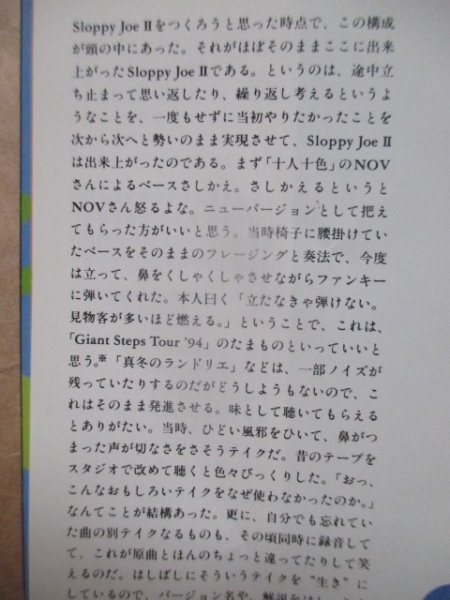 Sloppy Joe Ⅱをつくろうと思った時点で、この構成
が頭の中にあった。それがほぼそのままここに出来
上がったSloppy Joe Ⅱである。というのは、途中立
ち止まって思い返したり、繰り返し考えるというよ
うなことを、一度もせずに当初やりたかったことを
次から次へと勢いのまま実現させて、Sloppy Joe Ⅱ
は出来上がったのである。まず「十人十色」のNOV
さんによるベースさしかえ。さしかえるというと
NOVさん怒るよな。ニューバージョンとして把え
てもらった方がいいと思う。当時椅子に腰掛けてい
たベースをそのままのフレージングと奏法で、今度
は立って、鼻をくしゃくしゃさせながらファンキー
に弾いてくれた。本人曰く「立たなきゃ弾けない。
見物客が多いほど燃える。」ということで、これは、
「Giant Steps Tour '94」のたまものといっていいと
思う。※「真冬のランドリエ」などは、一部ノイズが
残っていたりするのだがどうしようもないので、こ
れはそのまま発進させる。味として聴いてもらえる
とありがたい。当時、ひどい風邪をひいて、鼻がつ
まった声が切なさをさそうテイクだ。昔のテープを
スタジオで改めて聴くと色々びっくりした。「おっ、
こんなおもしろいテイクをなぜ使わなかったのか。」
なんてことが結構あった。更に、自分でも忘れてい
た曲の別テイクなるものも、その頃同時に録音して
て、これが原曲とほんのちょっと違ってたりして笑
えるのだ。はしばしにそういうテイクを"生き"に
しているので、バージョン名や、解説をは